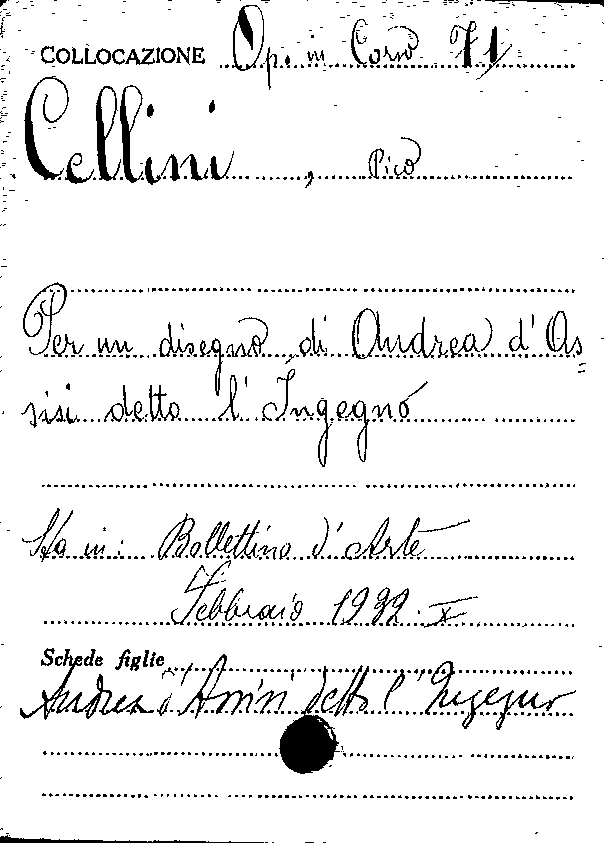 COLLOCAZIONE Op. in Corso 71
Cellini, Pico
Per un disegno di Andrea d'As=
sisi detto l'Ingegno
Sta in: Bollettino d'Arte
Febbraio 1932. X
Schede figlie
Andrea d'Assisi detto l'Ingegno